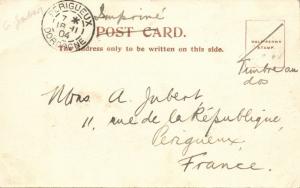 Imprimé
PERIGUEUX
7 *
18 -11
04
DORDOGNE
POST CARD.
The Address only to be written on this side.
HALF-PENNY
STAMP
Timbre au
dos
Mons A. Jubert
11, rue de la République
Perigueux
France.